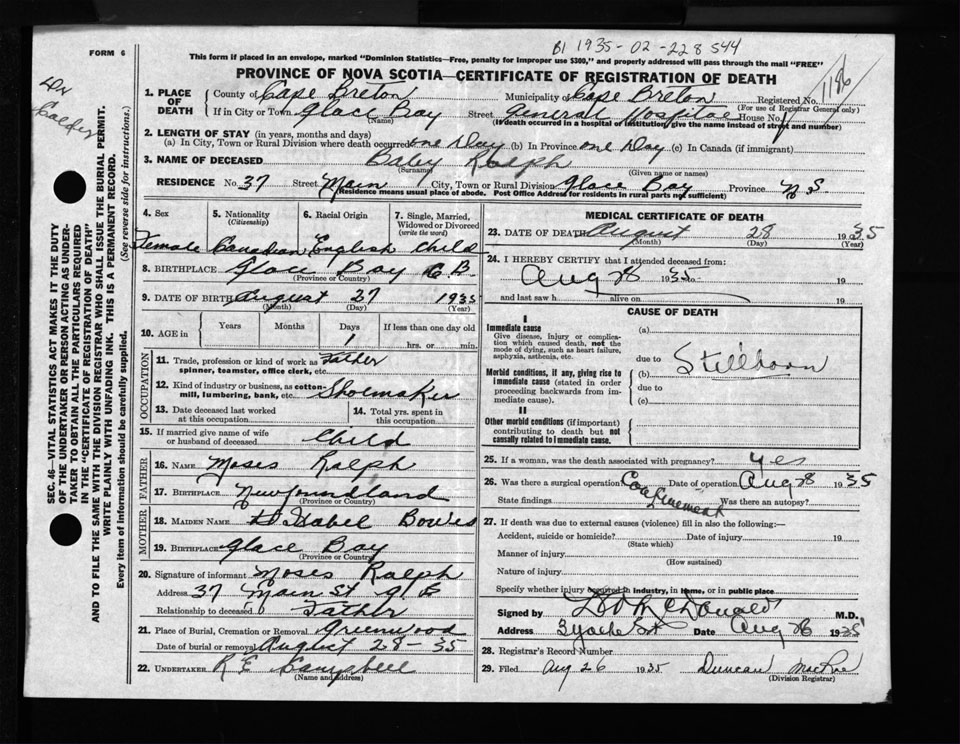 B1 1935-02-228544
FORM 6
This form is to be placed in an envelope, marked "Dominion Statistics—Free, penalty for improper use $300," and properly addressed will pass through the mail "FREE"
PROVINCE OF NOVA SCOTIA—CERTIFICATE OF REGISTRATION OF DEATH
1186
1. PLACE OF DEATH
County of Cape Breton Municipality of Cape Breton Registered No.
(For use of Registrar General only)
If in City or Town Glace Bay Street General Hospital House No.
(Name) (If death occurred in a hospital or institution, give the name instead of street and number)
2. LENGTH OF STAY (in years, months and days)
(a) In City, Town or Rural Division where death occurred one Day (b) In Province one Day (c) In Canada (if immigrant)
3. NAME OF DECEASED Baby Ralph
(Surname) (Given name or names)
RESIDENCE No. 37 Street Main City, Town or Rural Division Glace Bay Province N S
(Residence means usual place of abode. Post Office Address for residents in rural parts not sufficient)
SEC. 46—VITAL STATISTICS ACT MAKES IT THE DUTY
OF THE UNDERTAKER OR PERSON ACTING AS UNDER-
TAKER TO OBTAIN ALL THE PARTICULARS REQUIRED
IN THE "CERTIFICATE OF REGISTRATION OF DEATH"
AND TO FILE THE SAME WITH THE DIVISION REGISTRAR WHO SHALL ISSUE THE BURIAL PERMIT.
WRITE PLAINLY WITH UNFADING INK. THIS IS A PERMANENT RECORD.
Every item of information should be carefully supplied. (See reverse side for instructions.)
4. Sex 5. Nationality 6. Racial Origin 7. Single, Married, Widowed or Divorced
(Citizenship) (write the word)
Female Canadian English Child
8. BIRTHPLACE Glace Bay C.B.
(Province or Country)
9. DATE OF BIRTH August 27 1935
(Month) (Day) (Year)
10. AGE in Years Months Days If less than one day old
1 hrs. or min.
OCCUPATION
11. Trade, profession or kind of work as Father
spinner, teamster, office clerk, etc.
12. Kind of industry or business, as cotton-
mill, lumbering, bank, etc. Shoemaker
13. Date deceased last worked at this occupation
14. Total yrs. spent in this occupation
15. If married give name of wife or husband of deceased Child
FATHER
16. NAME Moses Ralph
17. BIRTHPLACE Newfoundland
(Province or Country)
MOTHER
18. MAIDEN NAME Isabel Bowes
19. BIRTHPLACE Glace Bay
(Province or Country)
20. Signature of informant Moses Ralph
Address 37 Main St G B
Relationship to deceased Father
21. Place of Burial, Cremation or Removal Greenwood
Date of burial or removal August 28-35
22. UNDERTAKER R E Campbell
(Name and address)
MEDICAL CERTIFICATE OF DEATH
23. DATE OF DEATH August 28 1935
(Month) (Day) (Year)
24. I HEREBY CERTIFY that I attended deceased from:
Aug 28 1935 to 19
and last saw h alive on 19
CAUSE OF DEATH
I
Immediate cause (a)
Give disease, injury or complica-
tion which caused death, not the
mode of dying, such as heart failure,
asphyxia, asthenia, etc.
due to
Morbid conditions, if any, giving rise to (b) Stillborn
immediate cause (stated in order
proceeding backwards from im-
mediate cause).
due to
(c)
II
Other morbid conditions (if important)
contributing to death but not
causally related to immediate cause.
25. If a woman, was the death associated with pregnancy? Yes
26. Was there a surgical operation Confinement Date of operation Aug 28 1935
State findings Was there an autopsy?
27. If death was due to external causes (violence) fill in also the following:—
Accident, suicide or homicide? Date of injury 19
(State which)
Manner of injury
(How sustained)
Nature of injury
Specify whether injury occurred in industry, in home, or in public place
Signed by McDonald M.D.
Address 3 York St Date Aug 28 1935
28. Registrar's Record Number
29. Filed Aug 26 1935 Duncan MacRae
(Division Registrar)